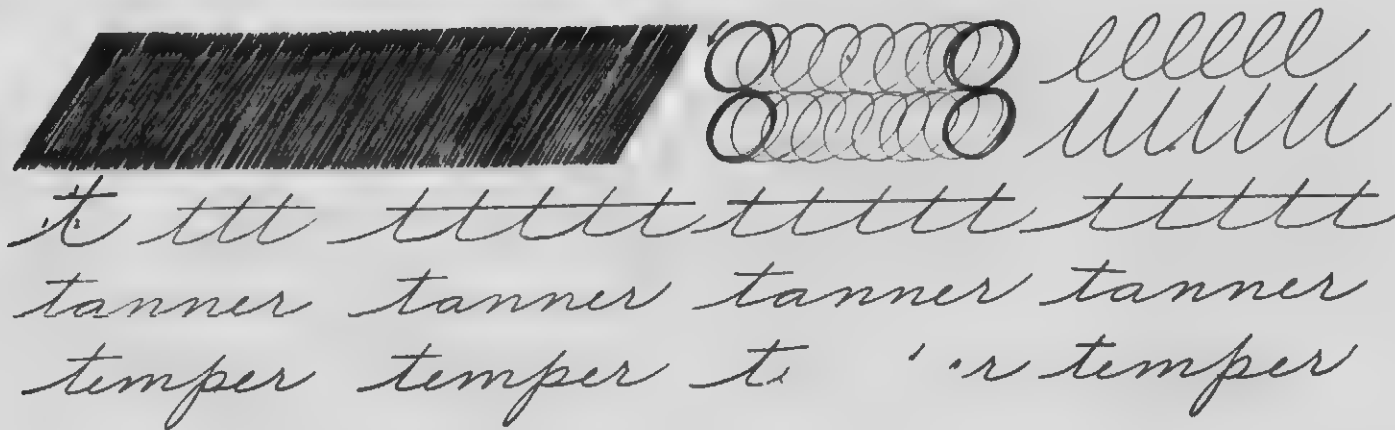 llllll
t ttt ttttt ttttt ttttt
tanner tanner tanner tanner
temper temper temper